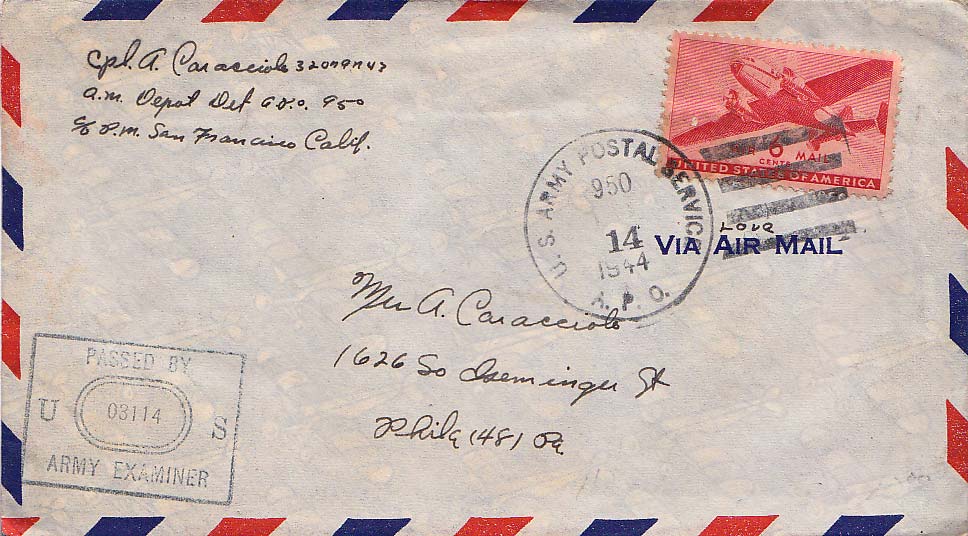 Cpl. A. Caracciolo
A.M. Depot Det A.P.O. 950
c/o P.M. San Francisco Calif.
6
CENTS MAIL
UNITED STATES OF AMERICA
U.S. ARMY POSTAL SERVICE
950
14
1944
A.P.O.
Love
VIA AIR MAIL
A. Caracciolo
1626 So Iseminger St
Phila (48) Pa.
PASSED BY
U 03114 S
ARMY EXAMINER